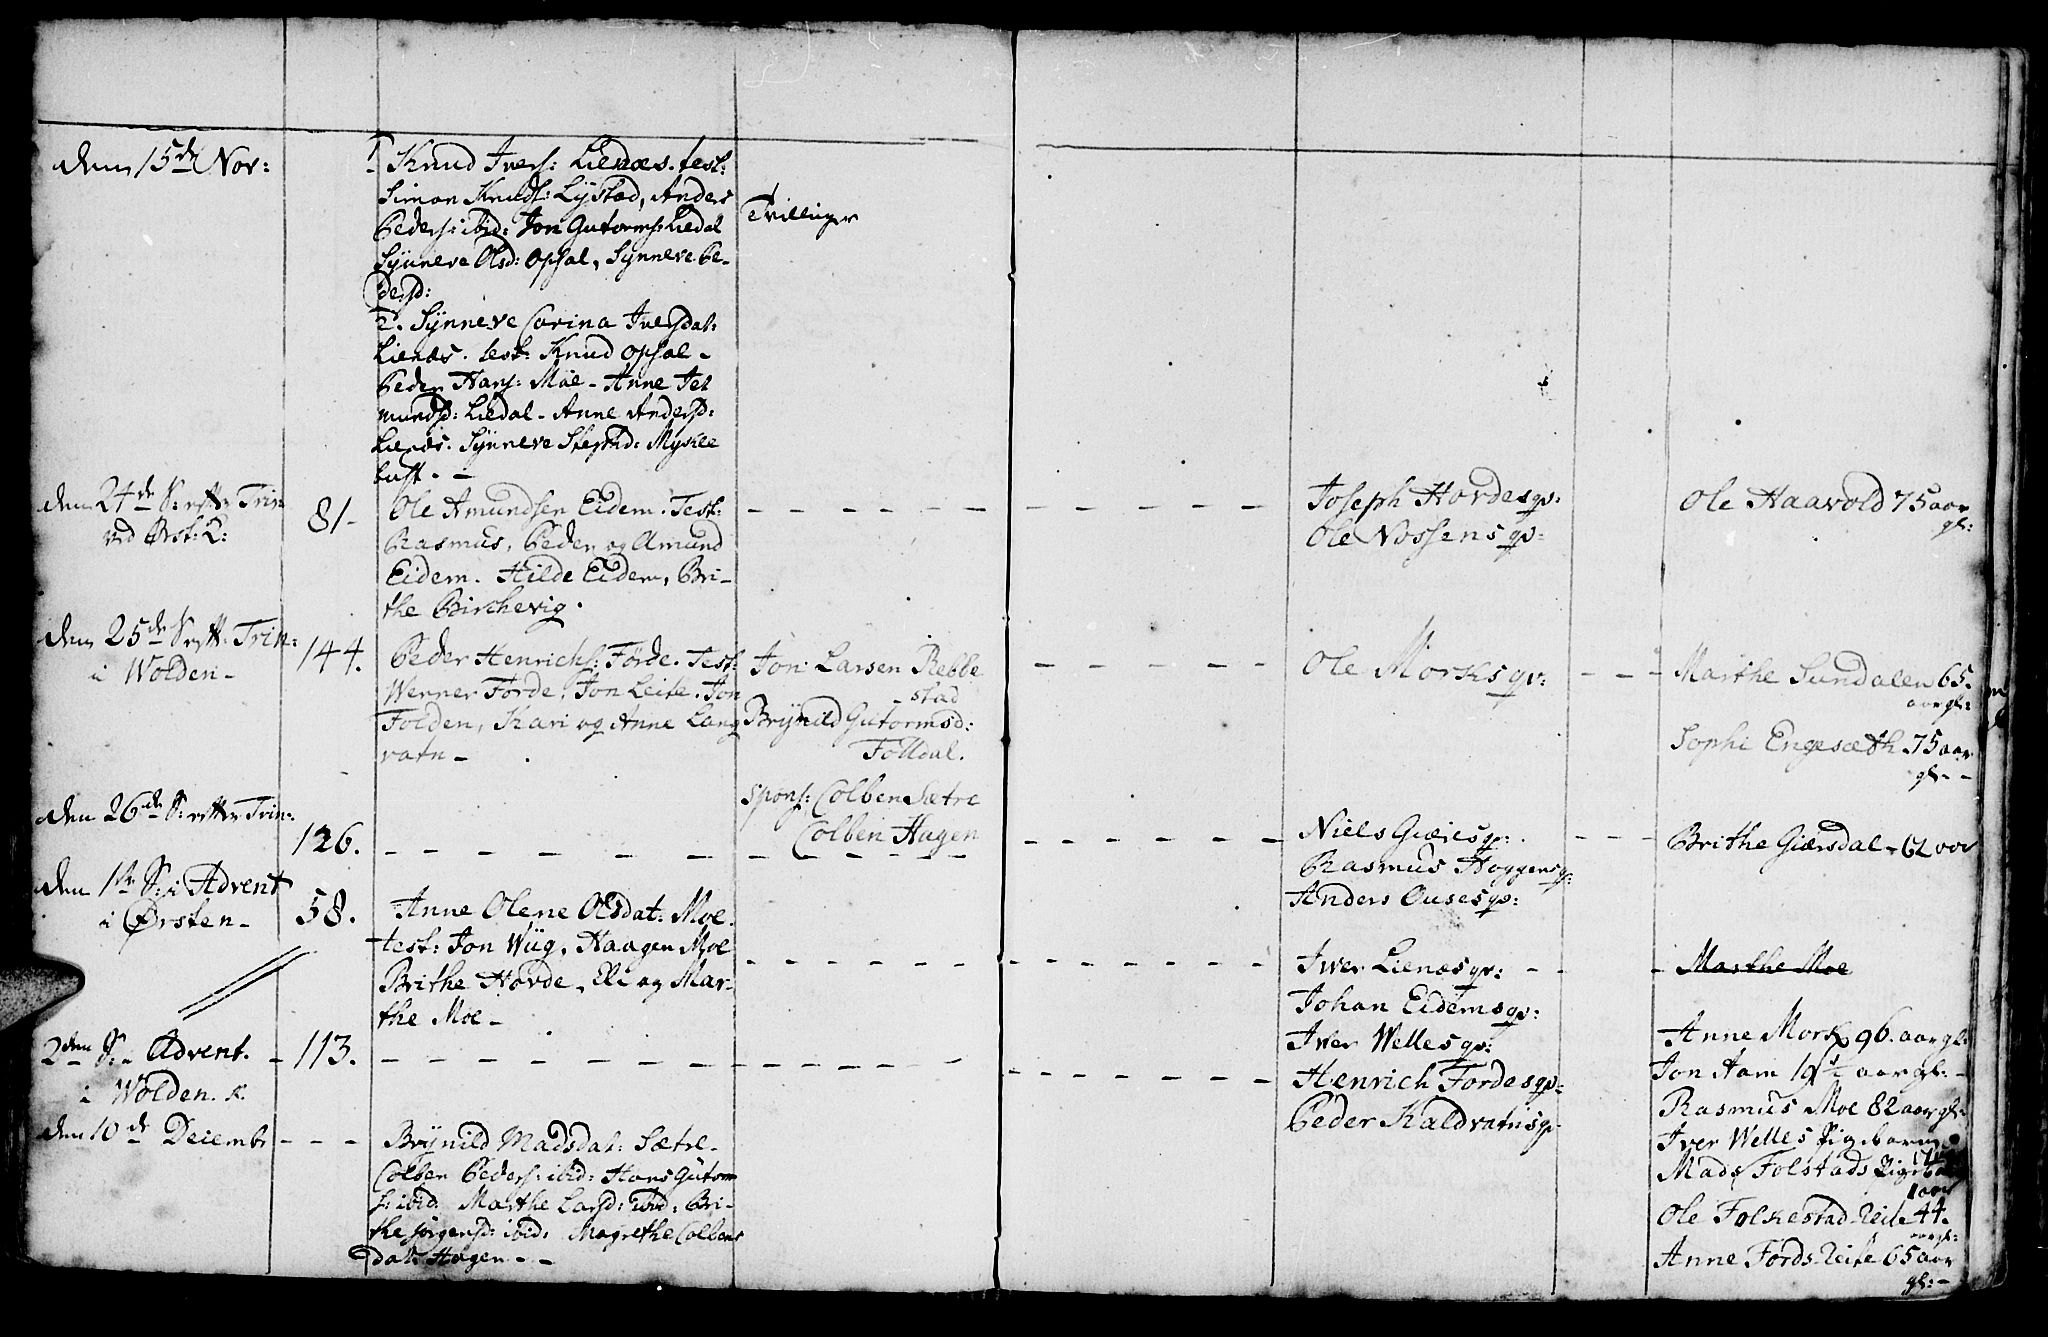 den 15de Nor:
1 Knud Ivers: Lienæs. test:
Simon Knuds: Lystad, Anders
Peders: ibid: Jon Gutorms: Liedal
Synneve Olsd: Opsal, Synneve Pe-
dersd:
Tvillinger
2. Synneve Carina Iversdat:
Lienæs. test: Knud Opsal -
Peder Hans: Moe - Anne Jet
mundsd: Liedal - Anne Andersd:
Lienæs. Synneve Stephd: Myskle
bust. -
den 24de S: efter Trin:
ved Ørst: K:
81-
Ole Amundsen Eidem. Test:
Rasmus, Peder og Amund
Eidem. Hilde Eidem, Bri-
the Birchevig.
Joseph Hovdes qv:
Ole Nossens qv:
Ole Haavold 75 aar
gl:
den 25de S. efft: Trin:
i Wolden -
144.
Peder Henrichs: Förde. Test:
Werner Förde, Jon Leite. Jon
Folden, Kari og Anne Lang
vatn -
Jon Larsen Rebbe
stad
Brynild Gutormsd:
Folldal.
spons: Colben Sætre
Colben Hagen
Ole Morks qv:
Marthe Sundalen 65.
aar gl:
Sophi Engesæth 75 aar
gl: -
den 26de S: efter Trin:
126.
Niels Giæies qv:
Rasmus Hoggens qv:
Anders Ouses qv:
Brithe Giærsdal - 62 aar
den 1ste S: i Advent
i Ørsten -
58.
Anne Olene Olsdat: Moe.
test: Jon Wiig, Haagen Moe
Brithe Hovde, Eli og Mar-
the Moe -
Iver Lienæs qv:
Johan Eidems qv:
Iver Welles qv:
Marthe Moe
2den S: Advent.
i Wolden. K.
- 113.
Henrich Fordes qv:
Peder Kaldvatns qv:
Anne Mork 96. aar gl:
Jon Aam 19 1/2 aar gl: -
Rasmus Moe 82 aar gl:
Iver Welles Pigebarn
Mads Folstads Pigebarn
1 aar
Ole Folkestad-Reite 44.
aar gl:
Anne Fords-Reite 65 aar
gl: -
den 10de Decembr - - -
Brynild Madsdat: Sætre -
Colben Peders: ibid: Hans Gutorm
s: ibid. Marthe Larsd: ibid: Bri-
the Jørgensd: ibid: Magrethe Colbens
dat: Hagen - -